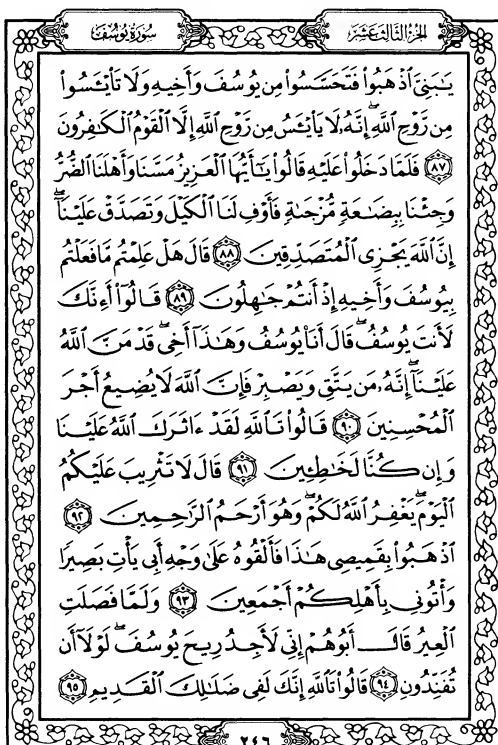 سُورَةُ يُوسُفَ
الجُزْءُ الثَّالِثَ عَشَرَ
يَٰبَنِيَّ ٱذْهَبُوا۟ فَتَحَسَّسُوا۟ مِن يُوسُفَ وَأَخِيهِ وَلَا تَا۟يْـَٔسُوا۟
مِن رَّوْحِ ٱللَّهِ ۖ إِنَّهُۥ لَا يَا۟يْـَٔسُ مِن رَّوْحِ ٱللَّهِ إِلَّا ٱلْقَوْمُ ٱلْكَٰفِرُونَ
٨٧ فَلَمَّا دَخَلُوا۟ عَلَيْهِ قَالُوا۟ يَٰٓأَيُّهَا ٱلْعَزِيزُ مَسَّنَا وَأَهْلَنَا ٱلضُّرُّ
وَجِئْنَا بِبِضَٰعَةٍ مُّزْجَىٰةٍ فَأَوْفِ لَنَا ٱلْكَيْلَ وَتَصَدَّقْ عَلَيْنَآ ۖ
إِنَّ ٱللَّهَ يَجْزِى ٱلْمُتَصَدِّقِينَ ٨٨ قَالَ هَلْ عَلِمْتُم مَّا فَعَلْتُم
بِيُوسُفَ وَأَخِيهِ إِذْ أَنتُمْ جَٰهِلُونَ ٨٩ قَالُوٓا۟ أَءِنَّكَ
لَأَنتَ يُوسُفُ ۖ قَالَ أَنَا۠ يُوسُفُ وَهَٰذَآ أَخِى ۖ قَدْ مَنَّ ٱللَّهُ
عَلَيْنَآ ۖ إِنَّهُۥ مَن يَتَّقِ وَيَصْبِرْ فَإِنَّ ٱللَّهَ لَا يُضِيعُ أَجْرَ
ٱلْمُحْسِنِينَ ٩٠ قَالُوا۟ تَٱللَّهِ لَقَدْ ءَاثَرَكَ ٱللَّهُ عَلَيْنَا
وَإِن كُنَّا لَخَٰطِـِٔينَ ٩١ قَالَ لَا تَثْرِيبَ عَلَيْكُمُ
ٱلْيَوْمَ ۖ يَغْفِرُ ٱللَّهُ لَكُمْ ۖ وَهُوَ أَرْحَمُ ٱلرَّٰحِمِينَ ٩٢
ٱذْهَبُوا۟ بِقَمِيصِى هَٰذَا فَأَلْقُوهُ عَلَىٰ وَجْهِ أَبِى يَأْتِ بَصِيرًا
وَأْتُونِى بِأَهْلِكُمْ أَجْمَعِينَ ٩٣ وَلَمَّا فَصَلَتِ
ٱلْعِيرُ قَالَ أَبُوهُمْ إِنِّى لَأَجِدُ رِيحَ يُوسُفَ ۖ لَوْلَآ أَن
تُفَنِّدُونِ ٩٤ قَالُوا۟ تَٱللَّهِ إِنَّكَ لَفِى ضَلَٰلِكَ ٱلْقَدِيمِ ٩٥
٢٤٦